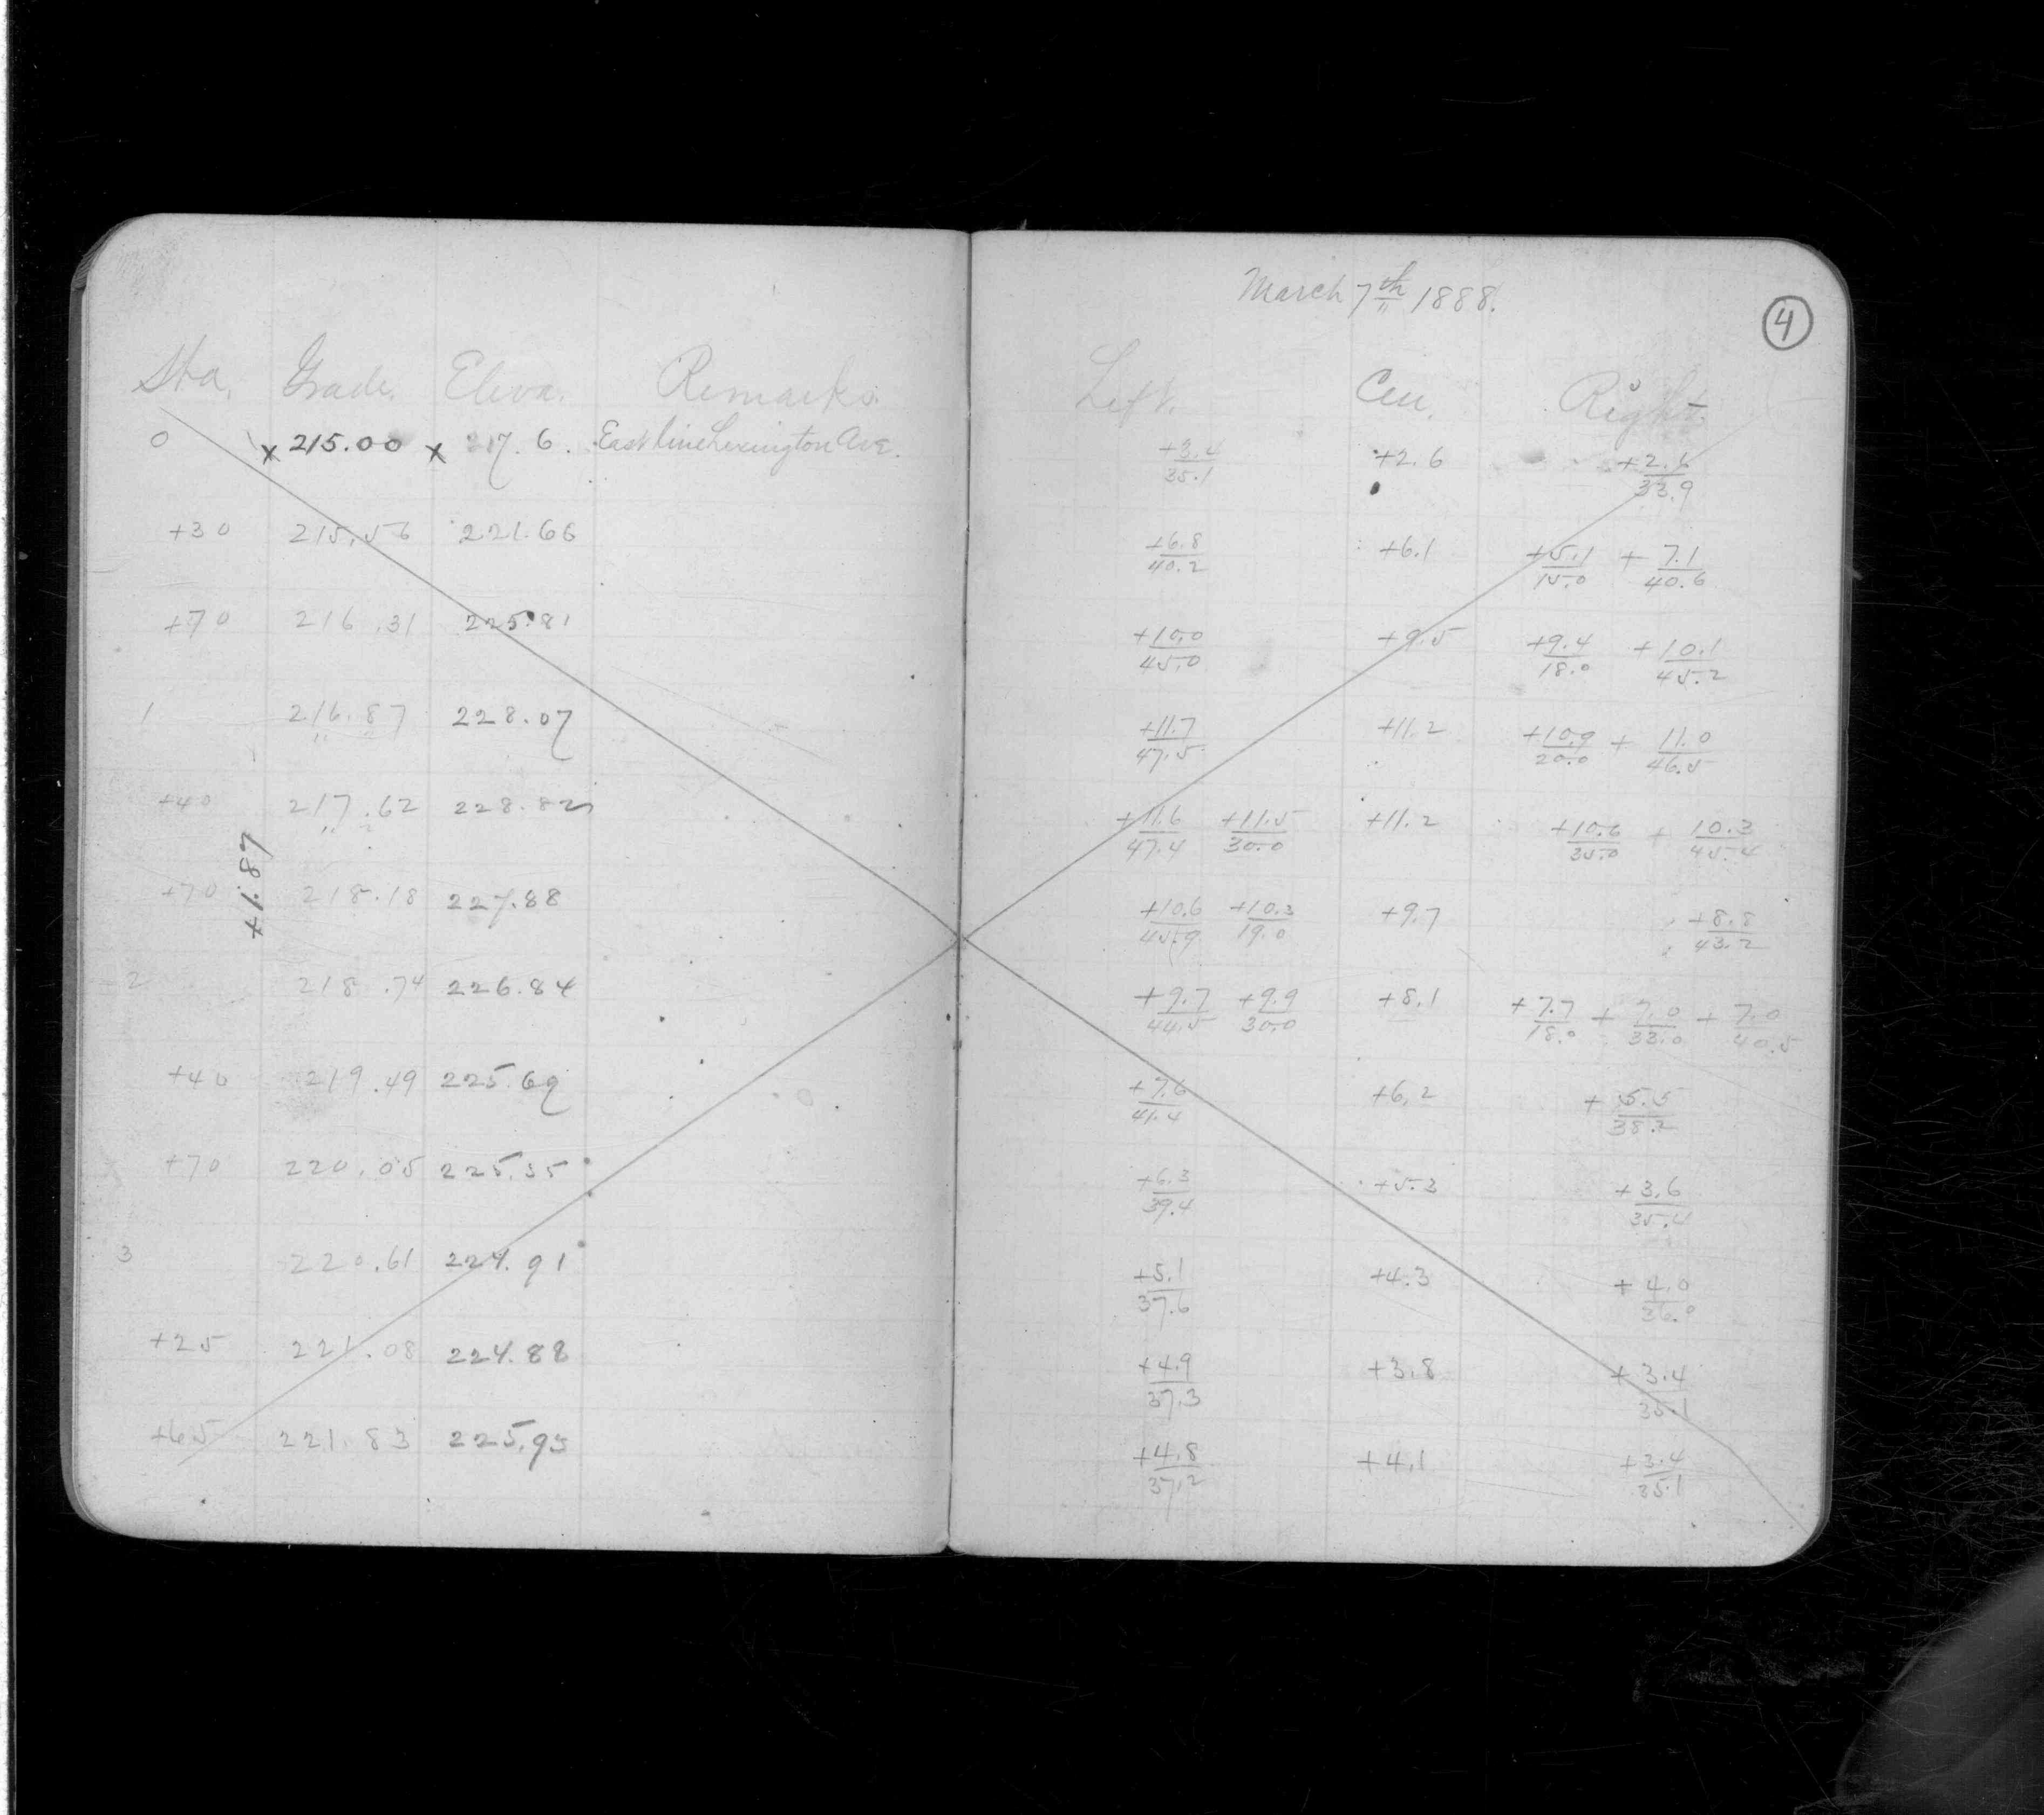 March 7th 1888.
4
Sta. Grade. Eleva. Remarks. Left. Cen. Right.
0 x 215.00 x 217.6. East line Lexington Ave. +3.4/35.1 +2.6 +2.6/33.9
+30 215.56 221.66 +6.8/40.2 +6.1 +5.1/15.0 + 7.1/40.6
+70 216.31 225.81 +10.0/45.0 +9.5 +9.4/18.0 +10.1/45.2
1 216.87 228.07 +11.7/47.5 +11.2 +10.9/20.0 + 11.0/46.5
+40 217.62 228.82 +11.6/47.4 +11.5/30.0 +11.2 +10.6/35.0 + 10.3/45.4
+1.87
+70 218.18 227.88 +10.6/45.9 +10.3/19.0 +9.7 +8.8/43.2
2 218.74 226.84 +9.7/44.5 +9.9/30.0 +8.1 +7.7/18.0 + 7.0/33.0 + 7.0/40.5
+40 219.49 225.69 +7.6/41.4 +6.2 + 5.5/38.2
+70 220.05 225.35 +6.3/39.4 +5.3 +3.6/35.4
3 220.61 224.91 +5.1/37.6 +4.3 + 4.0/36.0
+25 221.08 224.88 +4.9/37.3 +3.8 + 3.4/35.1
+65 221.83 225.93 +4.8/37.2 +4.1 +3.4/35.1